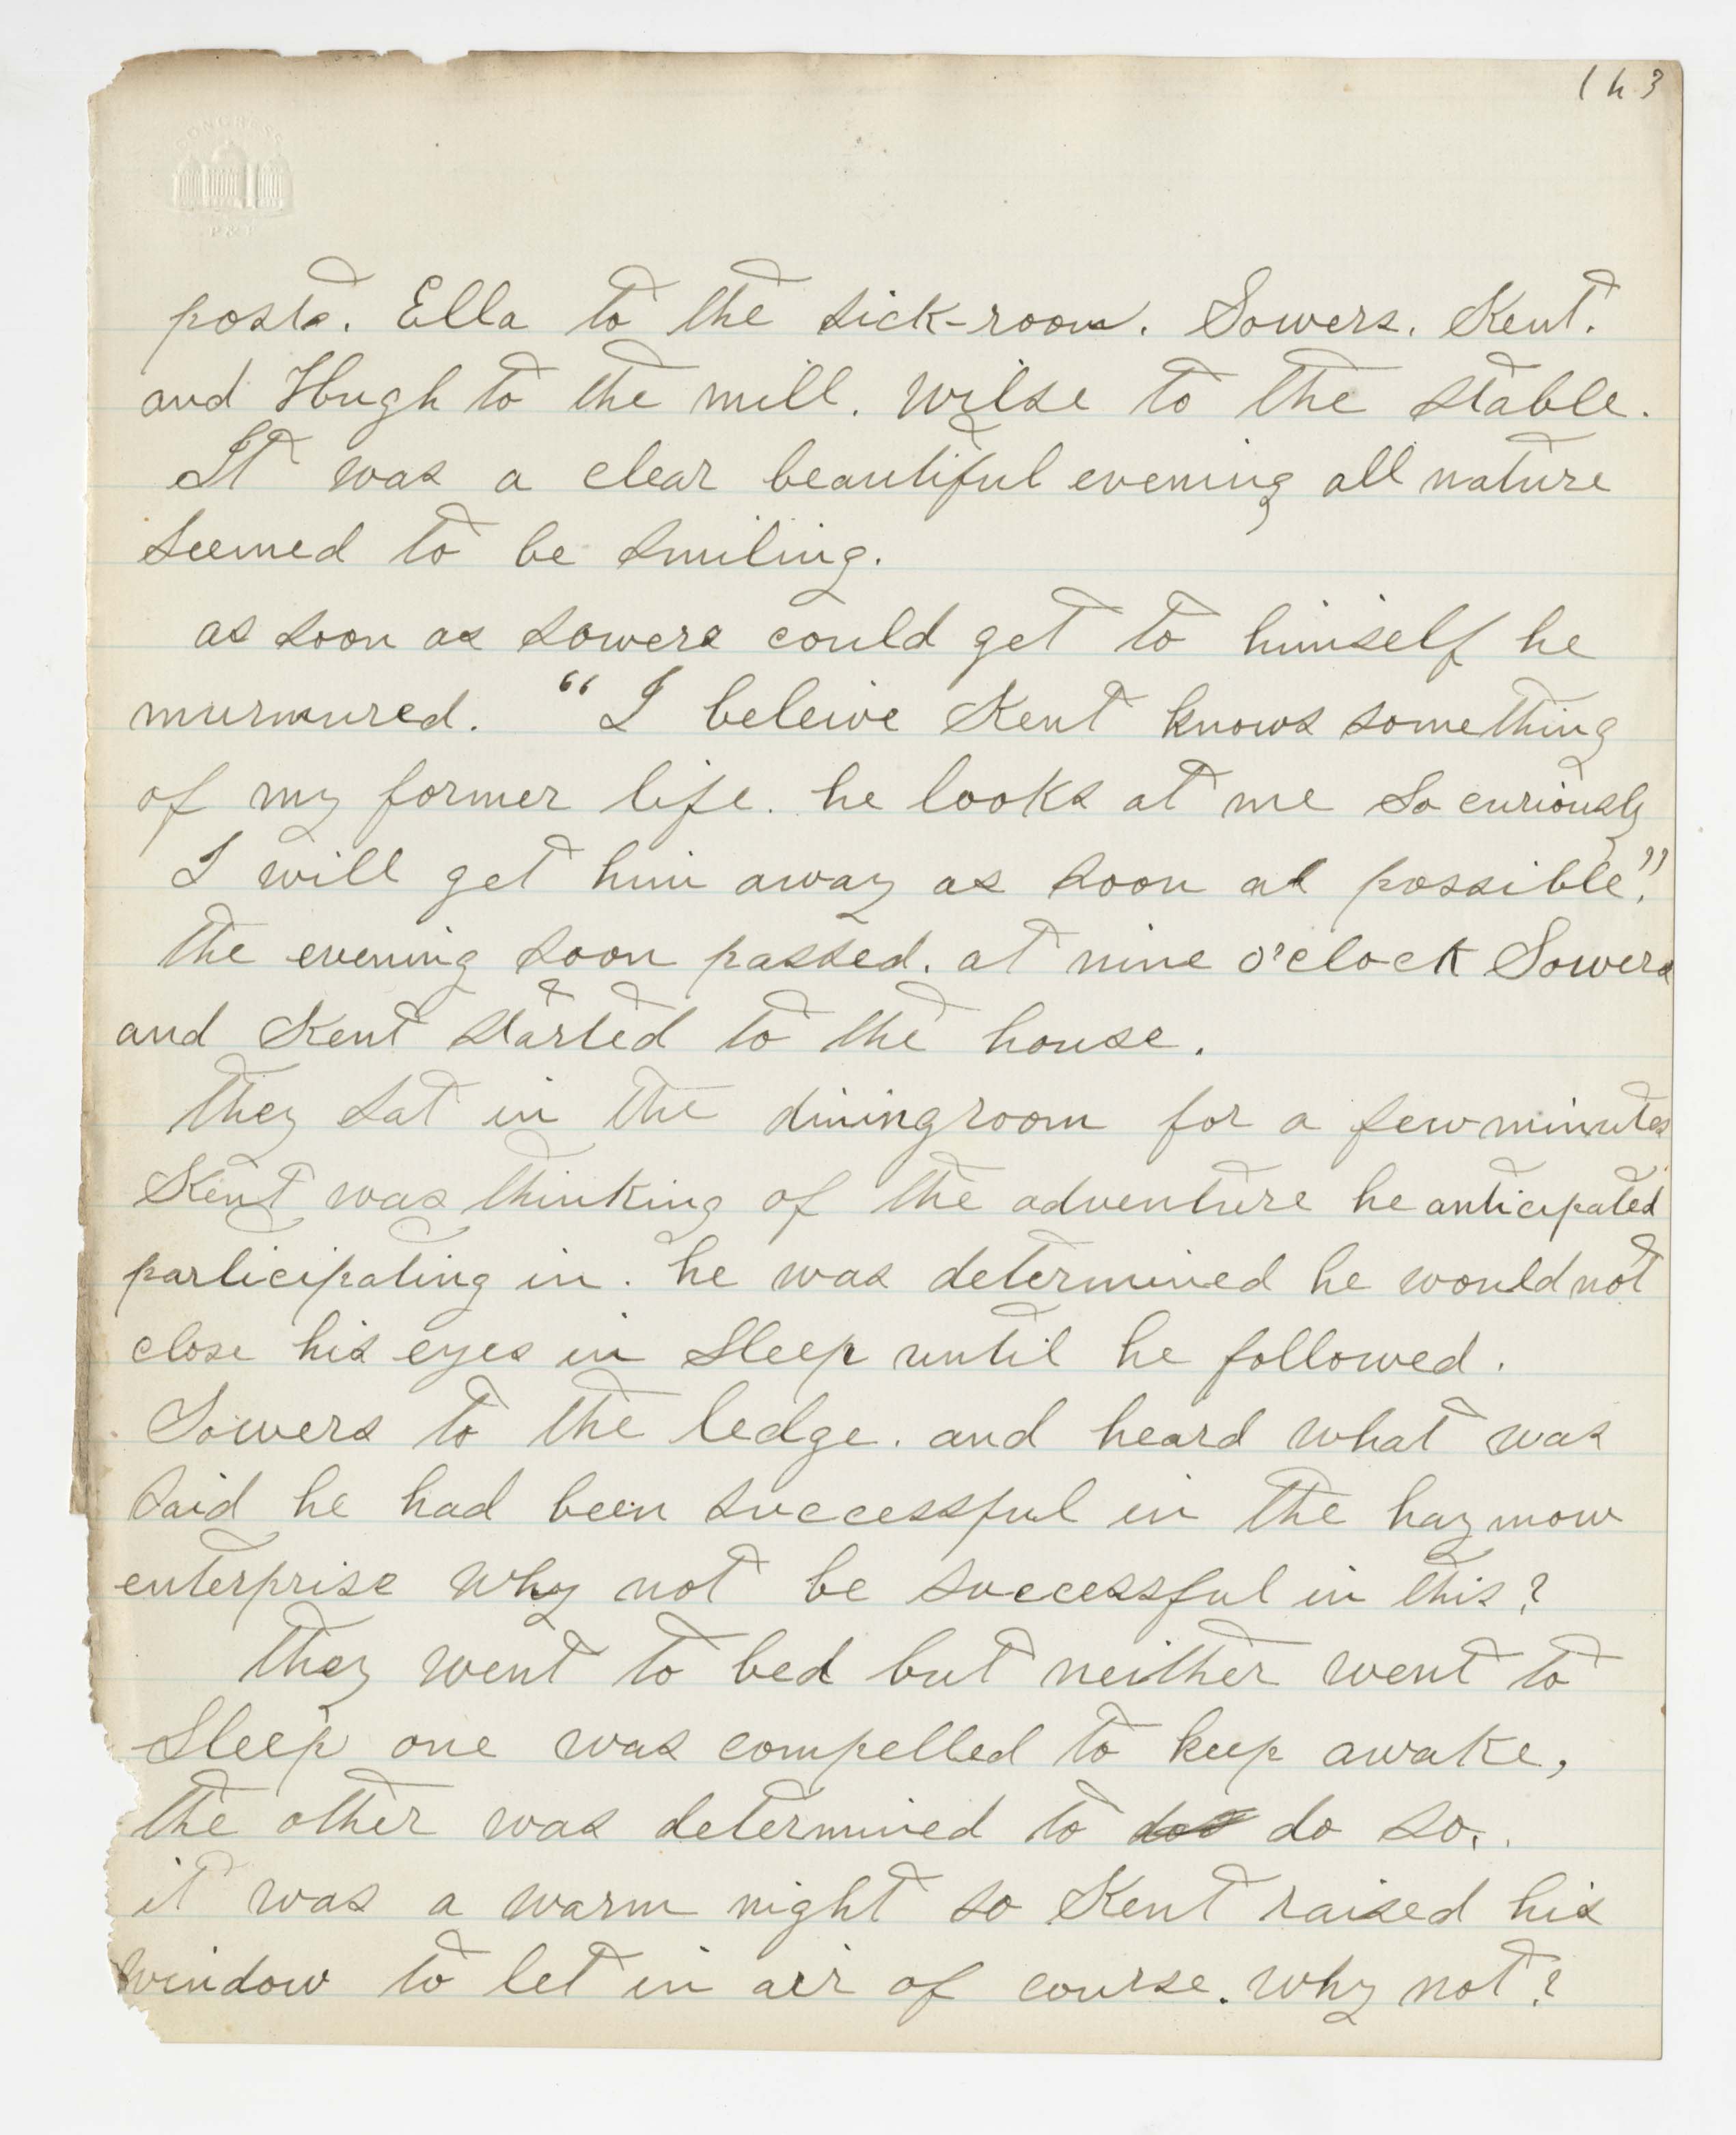 143
CONGRESS
P & P
posts. Ella to the sick-room. Sowers. Kent.
and Hugh to the mill. Wilse to the stable.
It was a clear beautiful evening all nature
seemed to be smiling.
as soon as sowers could get to himself he
murmured. "I beleive Kent knows something
of my former life. he looks at me so curiously
I will get him away as soon as possible."
the evening soon passed. at nine o'clock Sowers
and Kent started to the house.
they sat in the diningroom for a few minutes
Kent was thinking of the adventure he anticipated
participating in. he was determined he would not
close his eyes in sleep until he followed.
Sowers to the ledge. and heard what was
said he had been successful in the haymow
enterprise why not be successful in this?
they went to bed but neither went to
sleep one was compelled to keep awake,
the other was determined to do so.
it was a warm night so Kent raised his
window to let in air of course. why not?